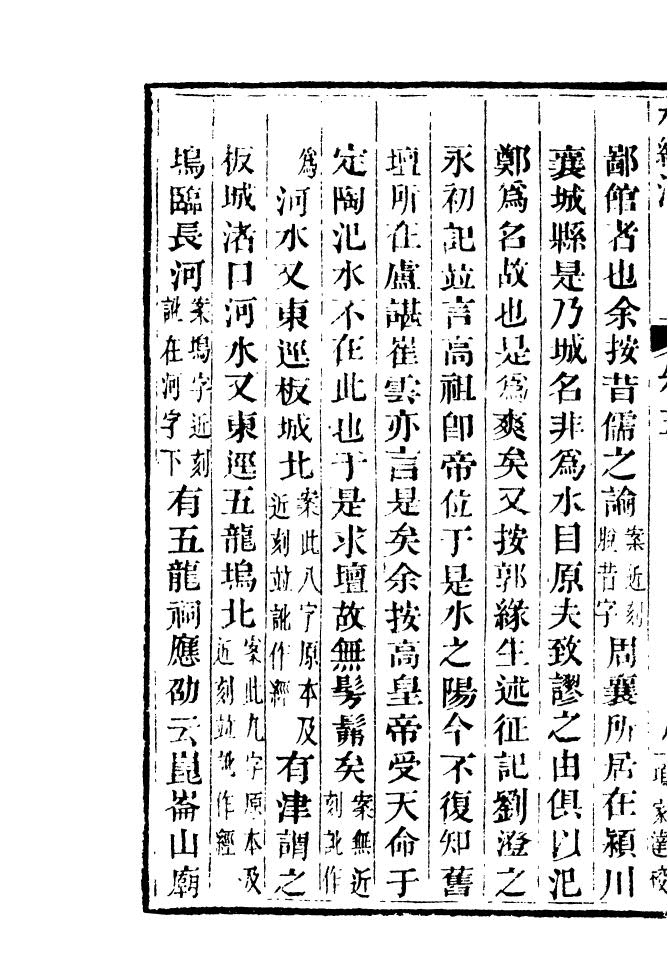 鄙館者也余按昔儒之論案近刻脫昔字周襄所居在潁川
襄城縣是乃城名非爲水目原夫致謬之由俱以氾
鄭爲名故也是爲爽矣又按郭緣生述征記劉澄之
永初記並言高祖卽帝位于是水之陽今不復知舊
壇所在盧諶崔雲亦言是矣余按高皇帝受天命于
定陶氾水不在此也于是求壇故無髣髴矣案無近刻訛作
爲河水又東逕板城北案此八字原本及近刻並訛作經有津謂之
板城渚口河水又東逕五龍塢北案此九字原本及近刻並訛作經
塢臨長河案塢字近刻訛在河字下有五龍祠應劭云崑崙山廟